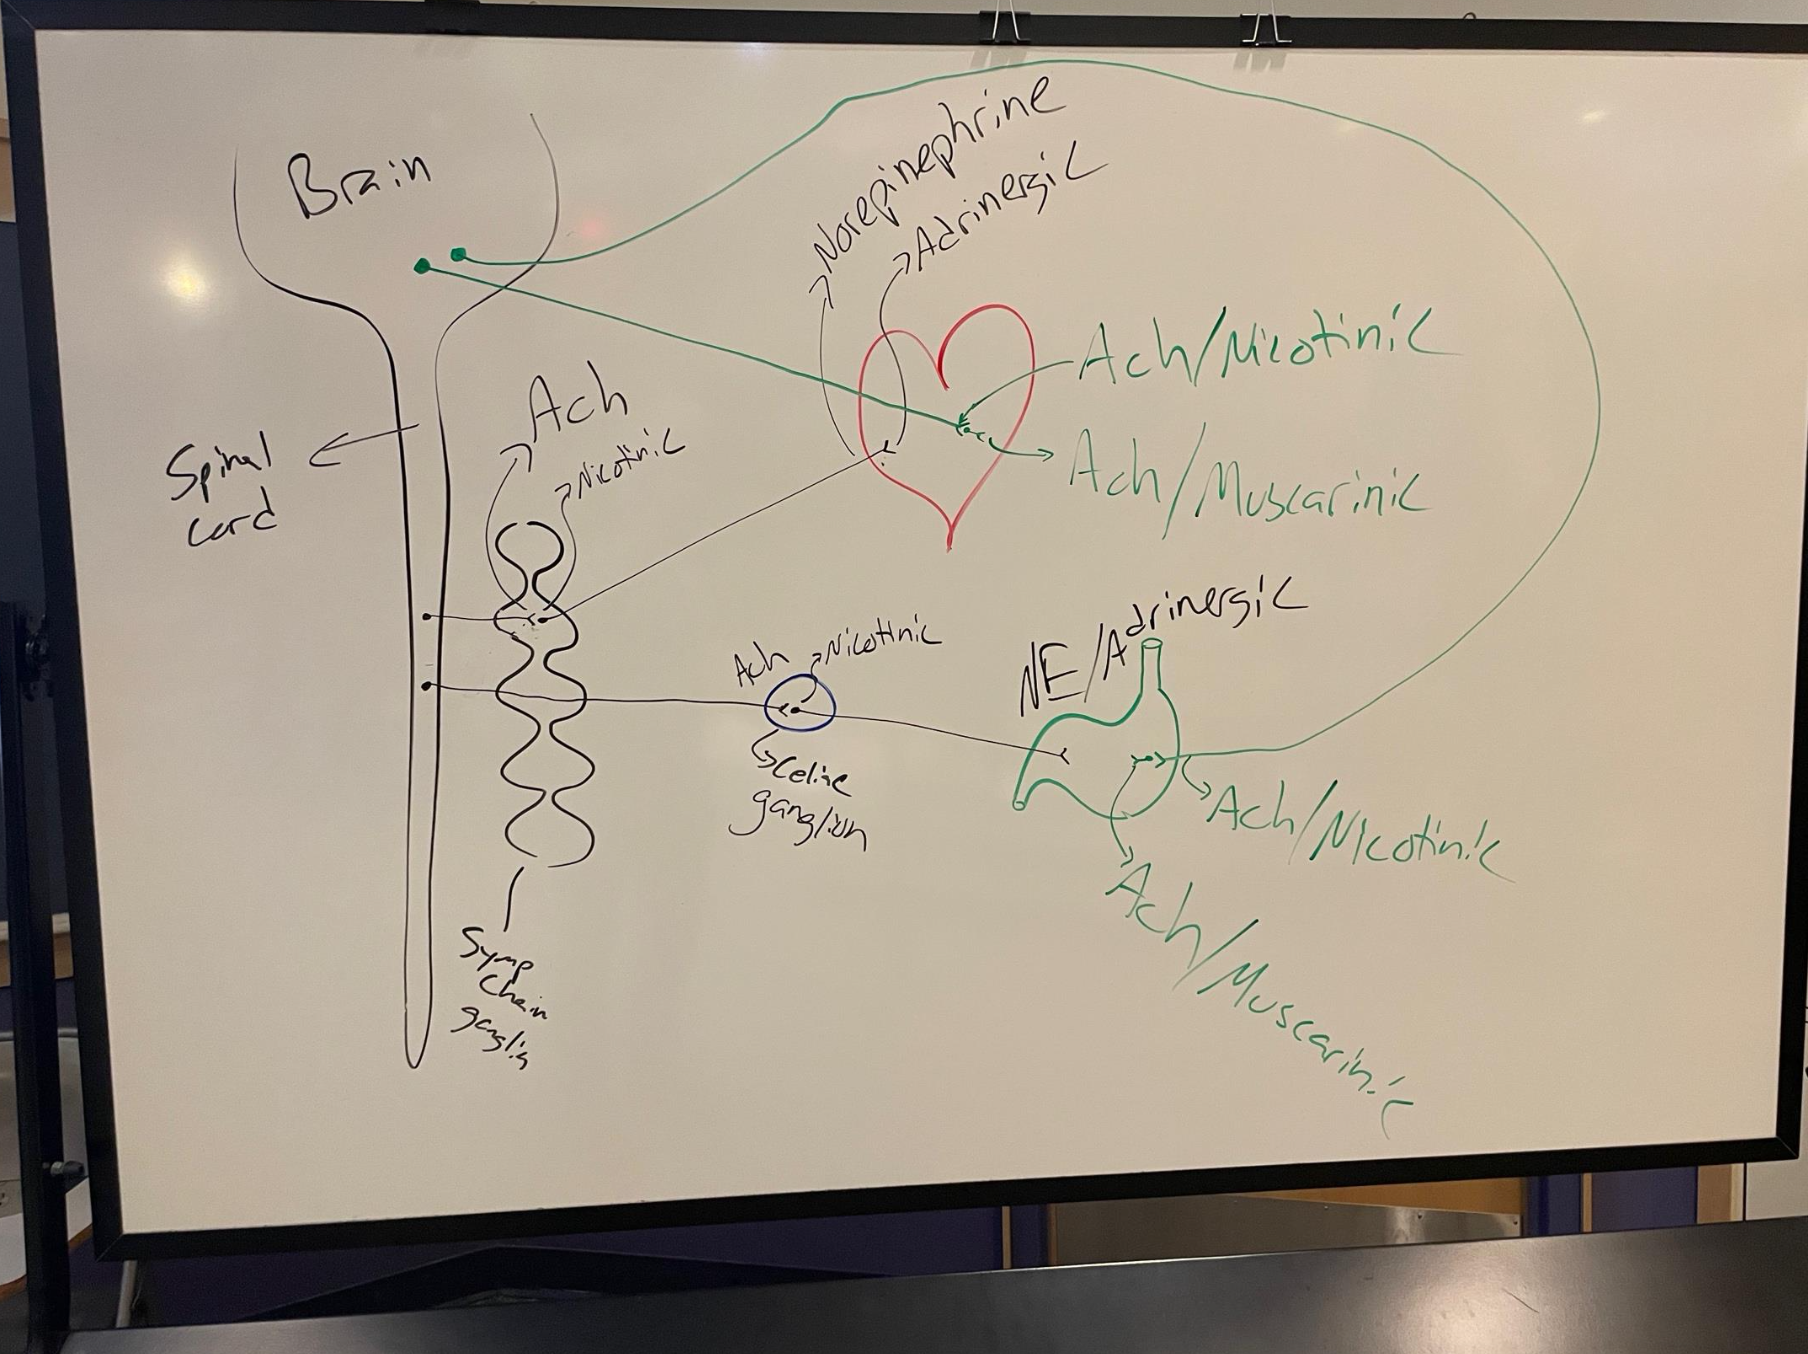 Brain
Norepinephrine
Adrinergic
Ach/Nicotinic
Ach
Nicotinic
Ach/Muscarinic
Spinal
Cord
NE/Adrinergic
Ach
Nicotinic
Celiac
ganglion
Ach/Nicotinic
Ach/Muscarinic
Symp
Chain
ganglia